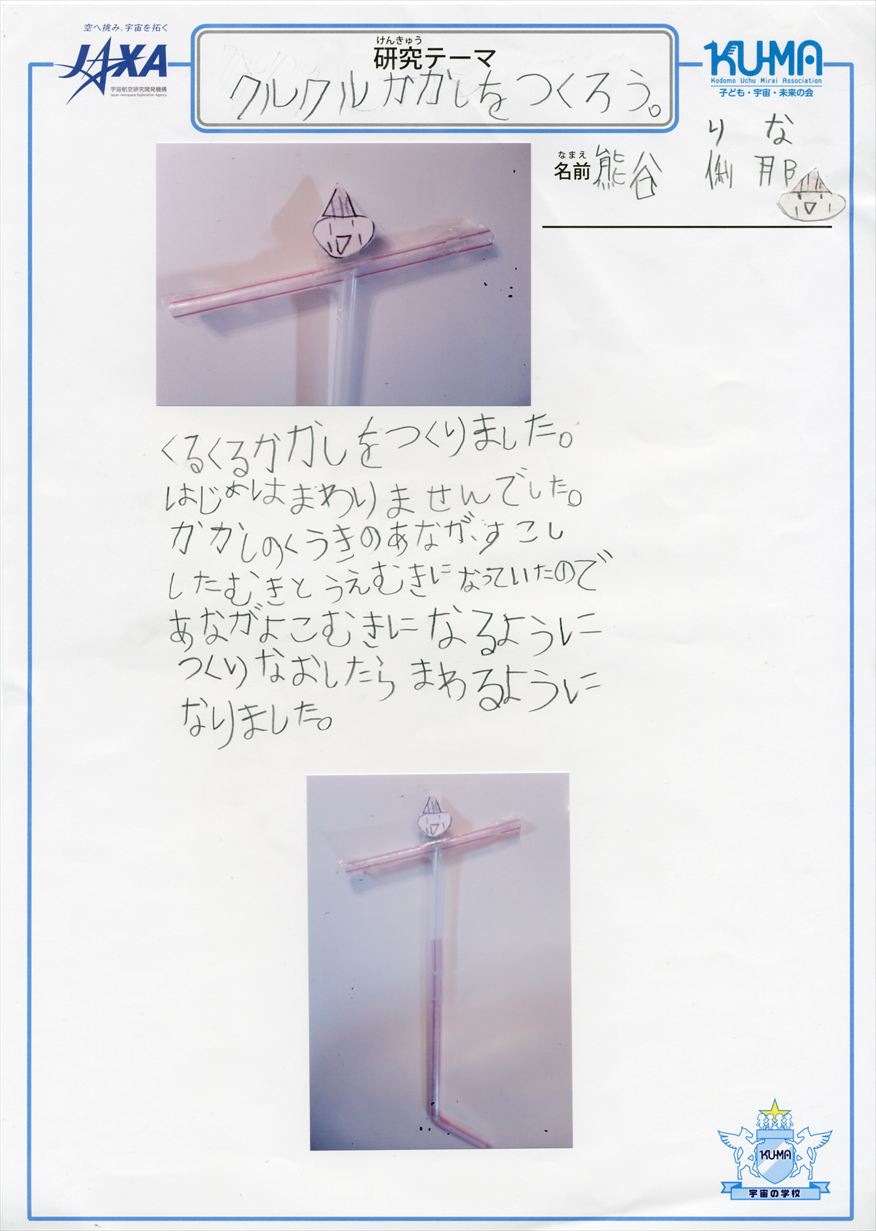 空へ挑み、宇宙を拓く
JAXA
宇宙航空研究開発機構
Japan Aerospace Exploration Agency
けんきゅう
研究テーマ
クルクルかかしをつくろう。
KU-MA
Kodomo Uchu Mirai Association
子ども・宇宙・未来の会
りな
なまえ
名前 熊谷 俐那
くるくるかかしをつくりました。
はじめはまわりませんでした。
かかしのくうきのあなが、すこし
したむきとうえむきになっていたので
あながよこむきになるように
つくりなおしたらまわるように
なりました。
KU-MA
宇宙の学校